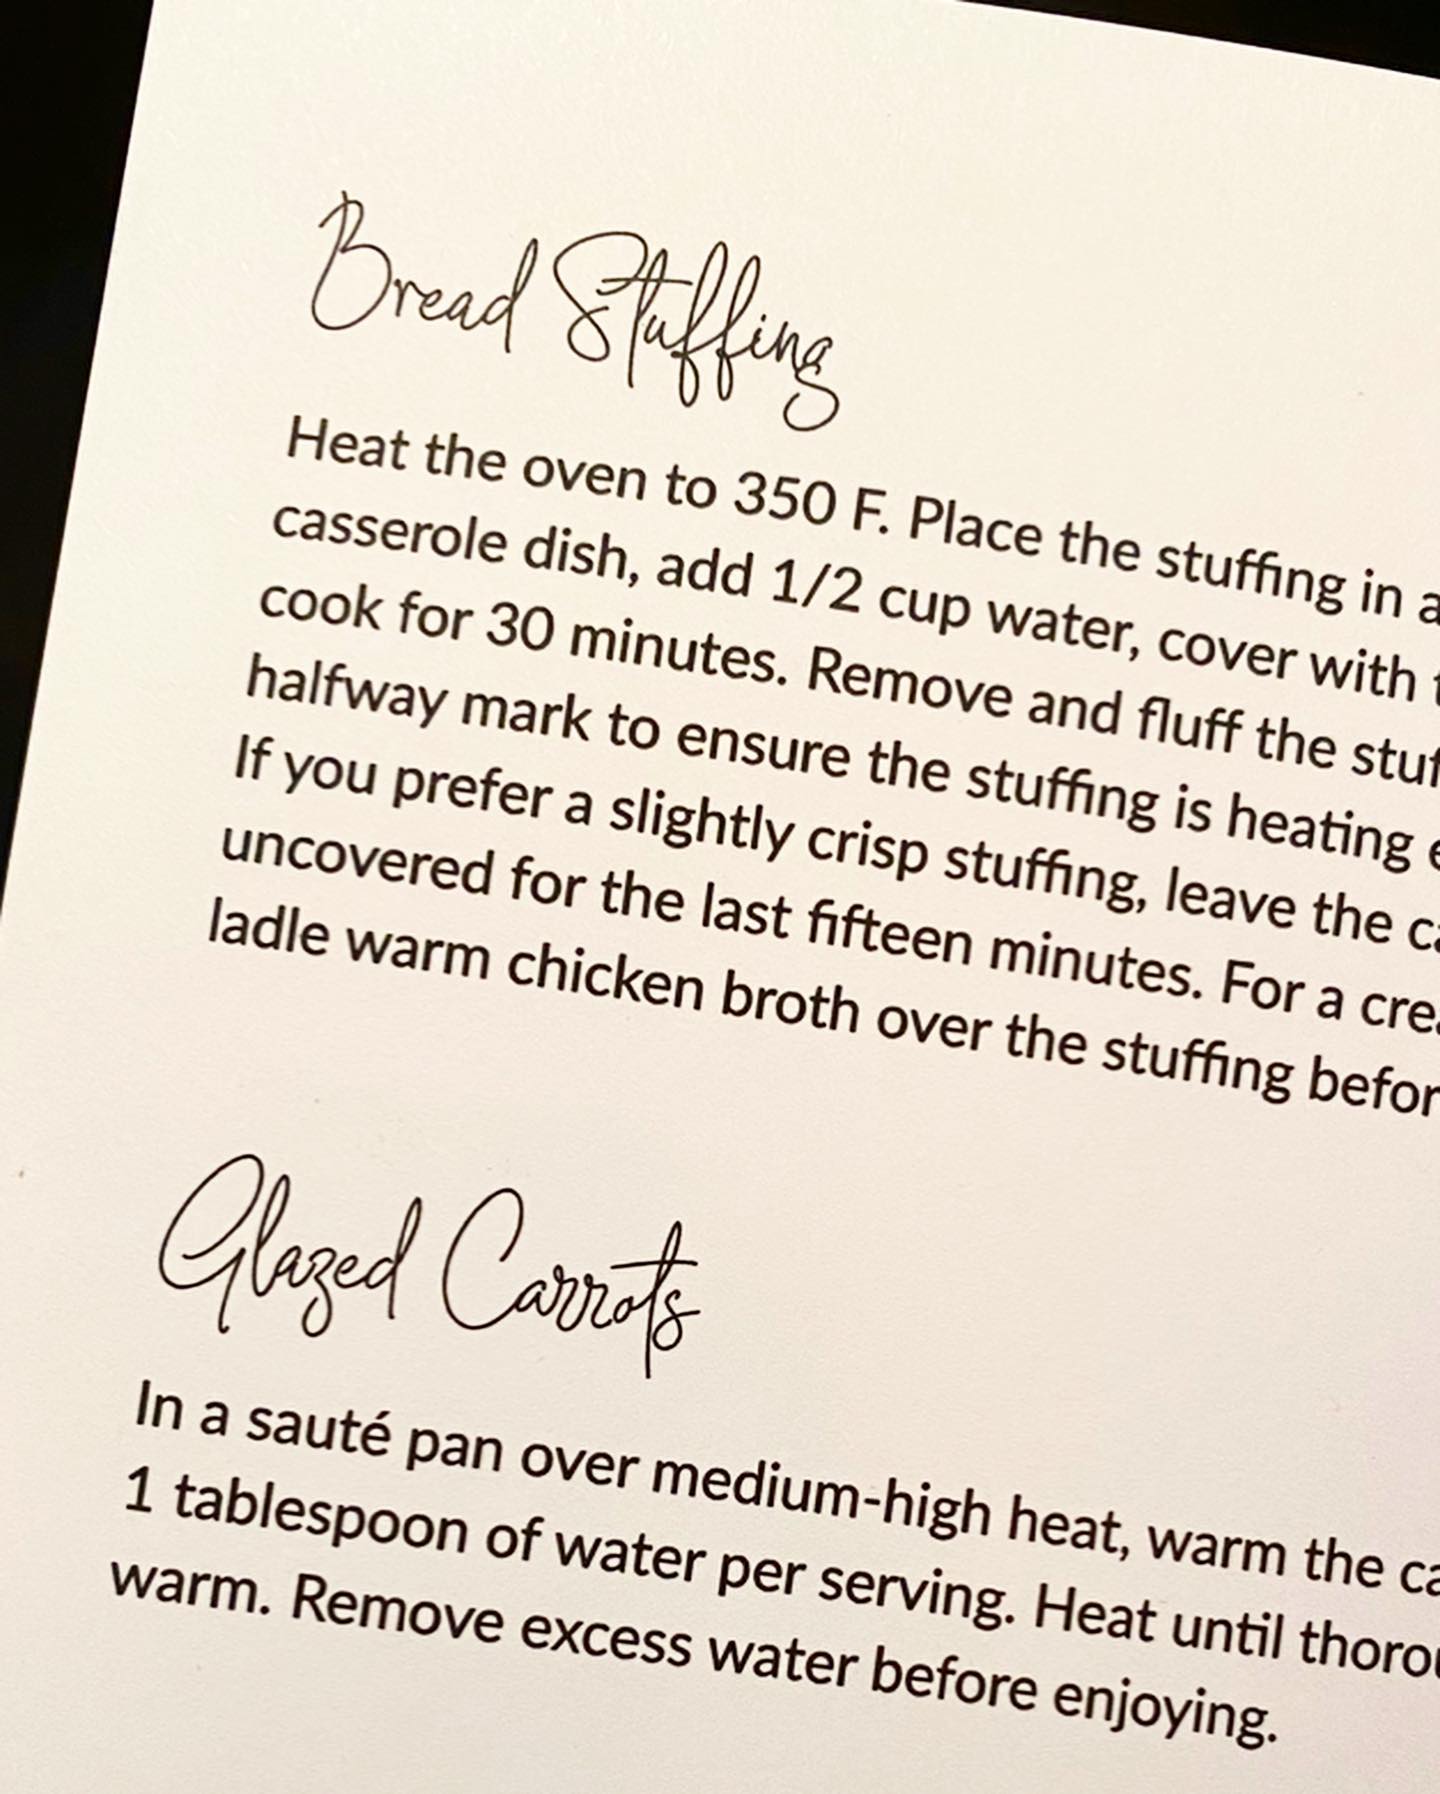 Bread Stuffing
Heat the oven to 350 F. Place the stuffing in a
casserole dish, add 1/2 cup water, cover with
cook for 30 minutes. Remove and fluff the
halfway mark to ensure the stuffing is heating
If you prefer a slightly crisp stuffing, leave the
uncovered for the last fifteen minutes. For a
ladle warm chicken broth over the stuffing
Glazed Carrots
In a sauté pan over medium-high heat, warm the
1 tablespoon of water per serving. Heat until
warm. Remove excess water before enjoying.